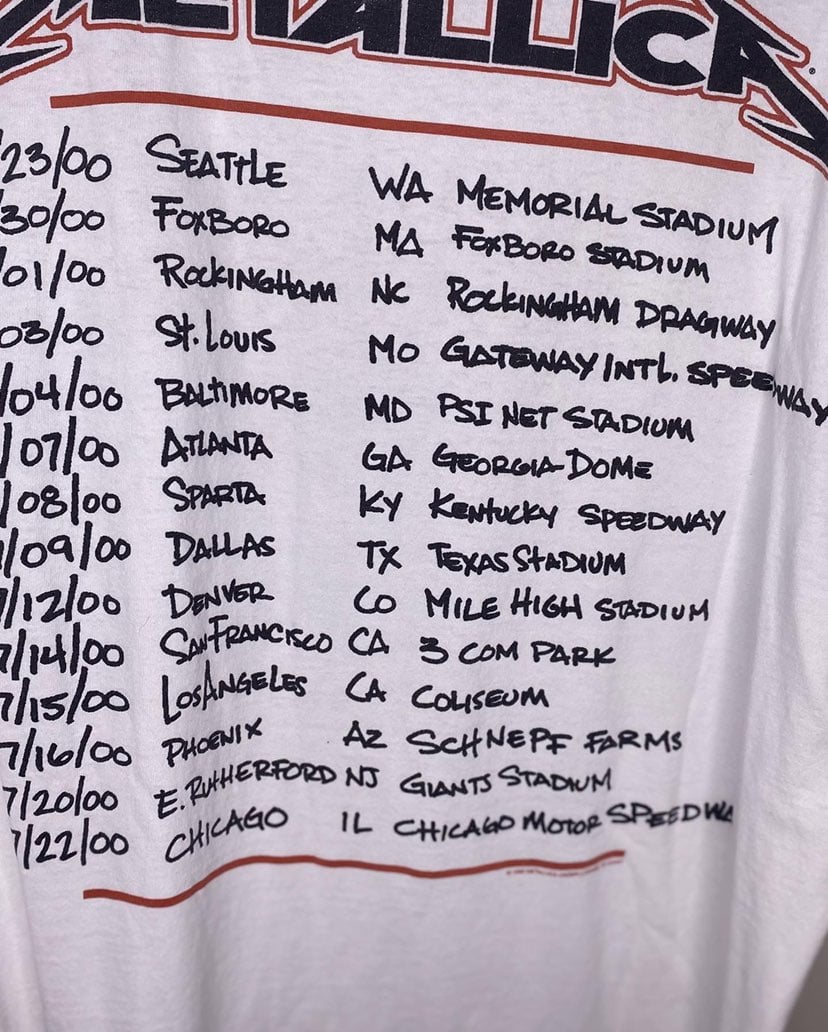 METALLICA
23/00 SEATTLE WA MEMORIAL STADIUM
30/00 FOXBORO MA FOXBORO STADIUM
/01/00 ROCKINGHAM NC ROCKINGHAM DRAGWAY
03/00 St. LOUIS MO GATEWAY INTL. SPEEDWAY
/04/00 BALTIMORE MD PSI NET STADIUM
/07/00 ATLANTA GA GEORGIA DOME
/08/00 SPARTA KY KENTUCKY SPEEDWAY
/09/00 DALLAS TX TEXAS STADIUM
/12/00 DENVER CO MILE HIGH STADIUM
7/14/00 SAN FRANCISCO CA 3 COM PARK
7/15/00 LOS ANGELES CA COLISEUM
7/16/00 PHOENIX AZ SCHNEPF FARMS
7/20/00 E. RUTHERFORD NJ GIANTS STADIUM
7/22/00 CHICAGO IL CHICAGO MOTOR SPEEDWA